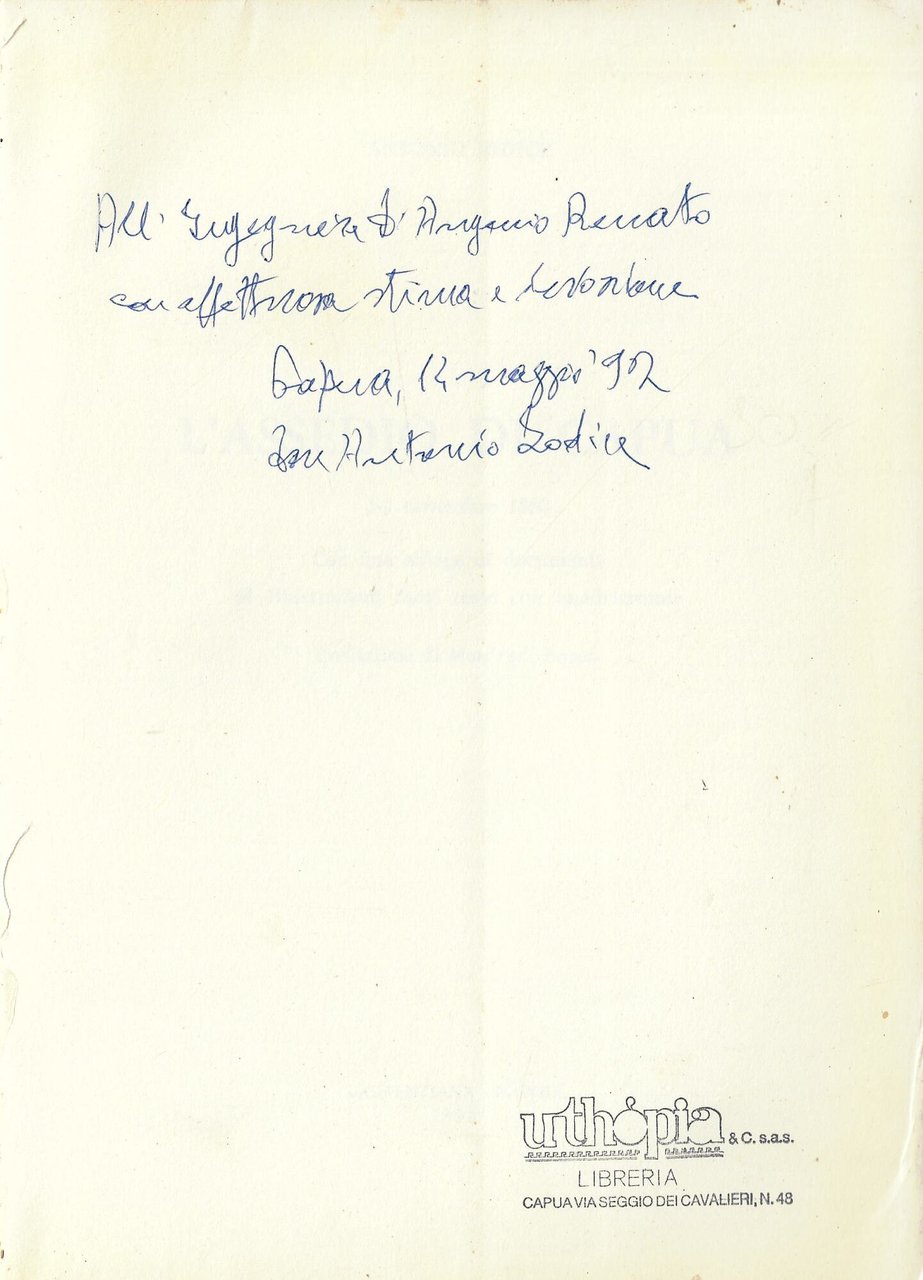 All' Ingegnere D' Angerio Renato
con affettuosa stima e devozione
Capua, 12 maggio '92
Don Antonio Iodice
L'ASSEDIO DI CAPUA
urthópia & C. s.a.s.
LIBRERIA
CAPUA VIA SEGGIO DEI CAVALIERI, N. 48